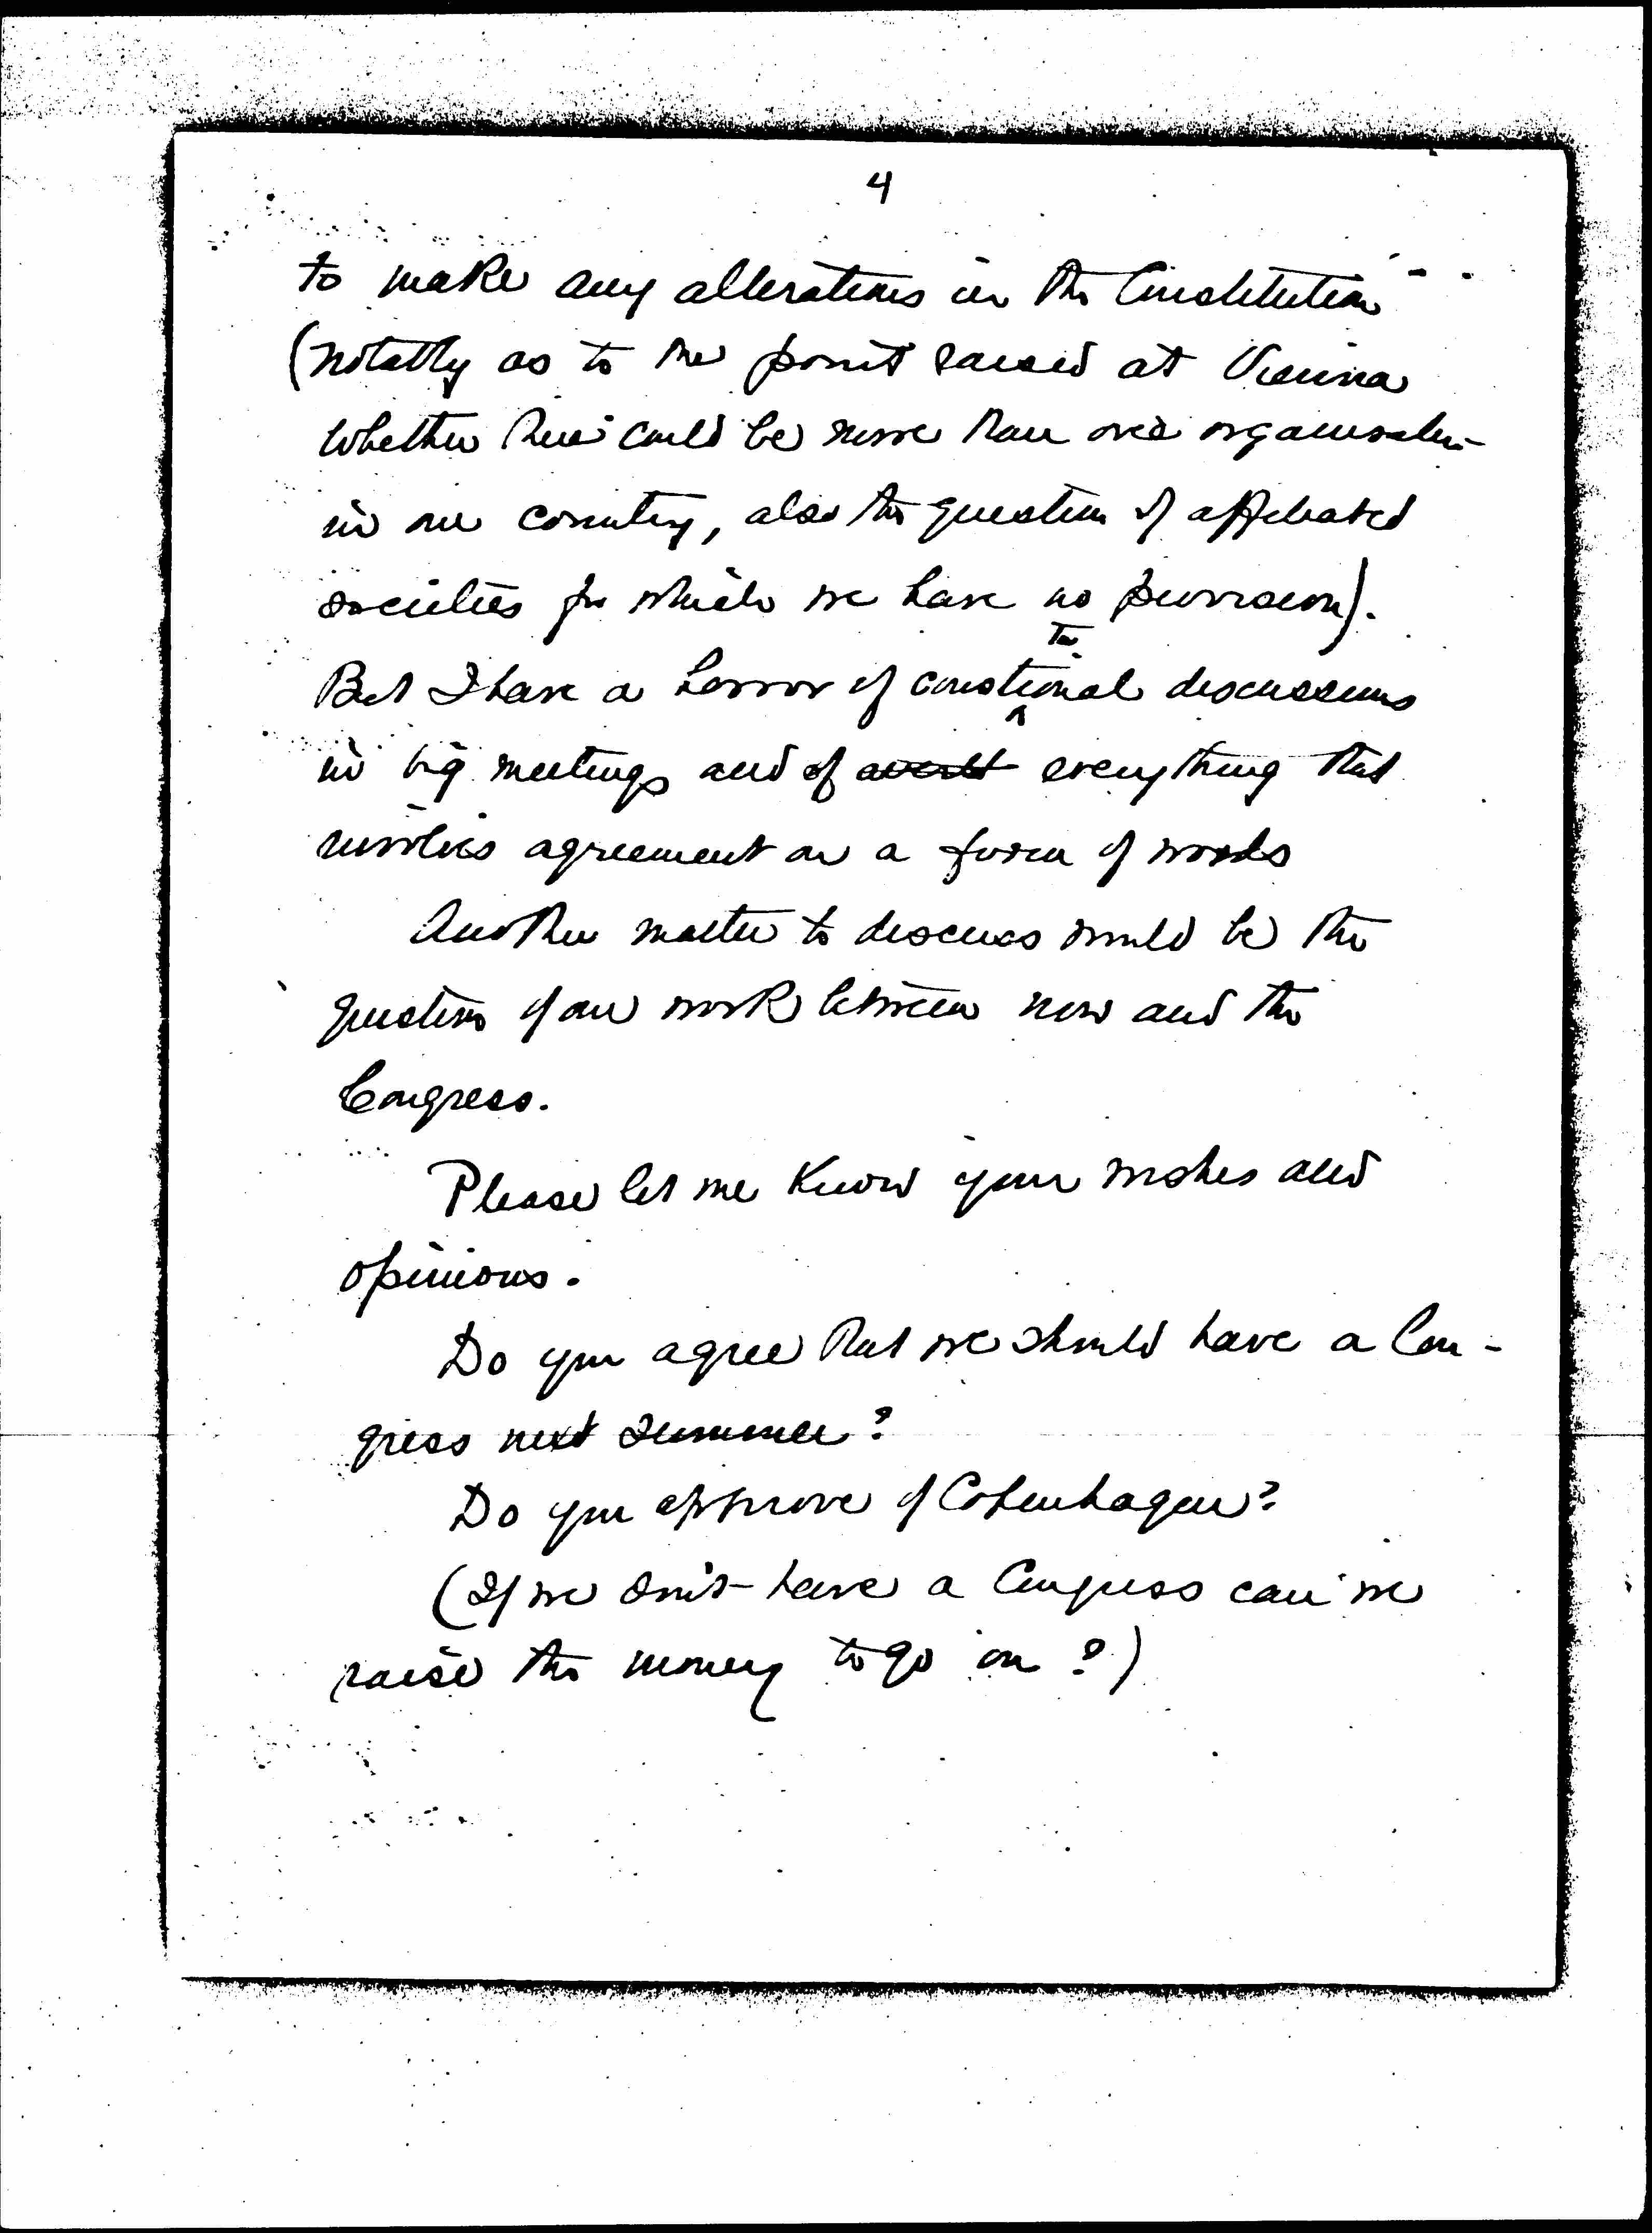 4
to make any alterations in the Constitution
(notably as to the point raised at Vienna
whether there could be more than one organisation
in one country, also the question of affiliated
societies for which we have no provision).
tu
But I have a horror of constional discussions
in big meetings and of everything that
involves agreement on a form of words
Another matter to discuss would be the
question of our work between now and the
Congress.
Please let me know your wishes and
opinions.
Do you agree that we should have a Con-
gress next summer?
Do you approve of Copenhagen?
(If we don't have a Congress can we
raise the money to go on?)